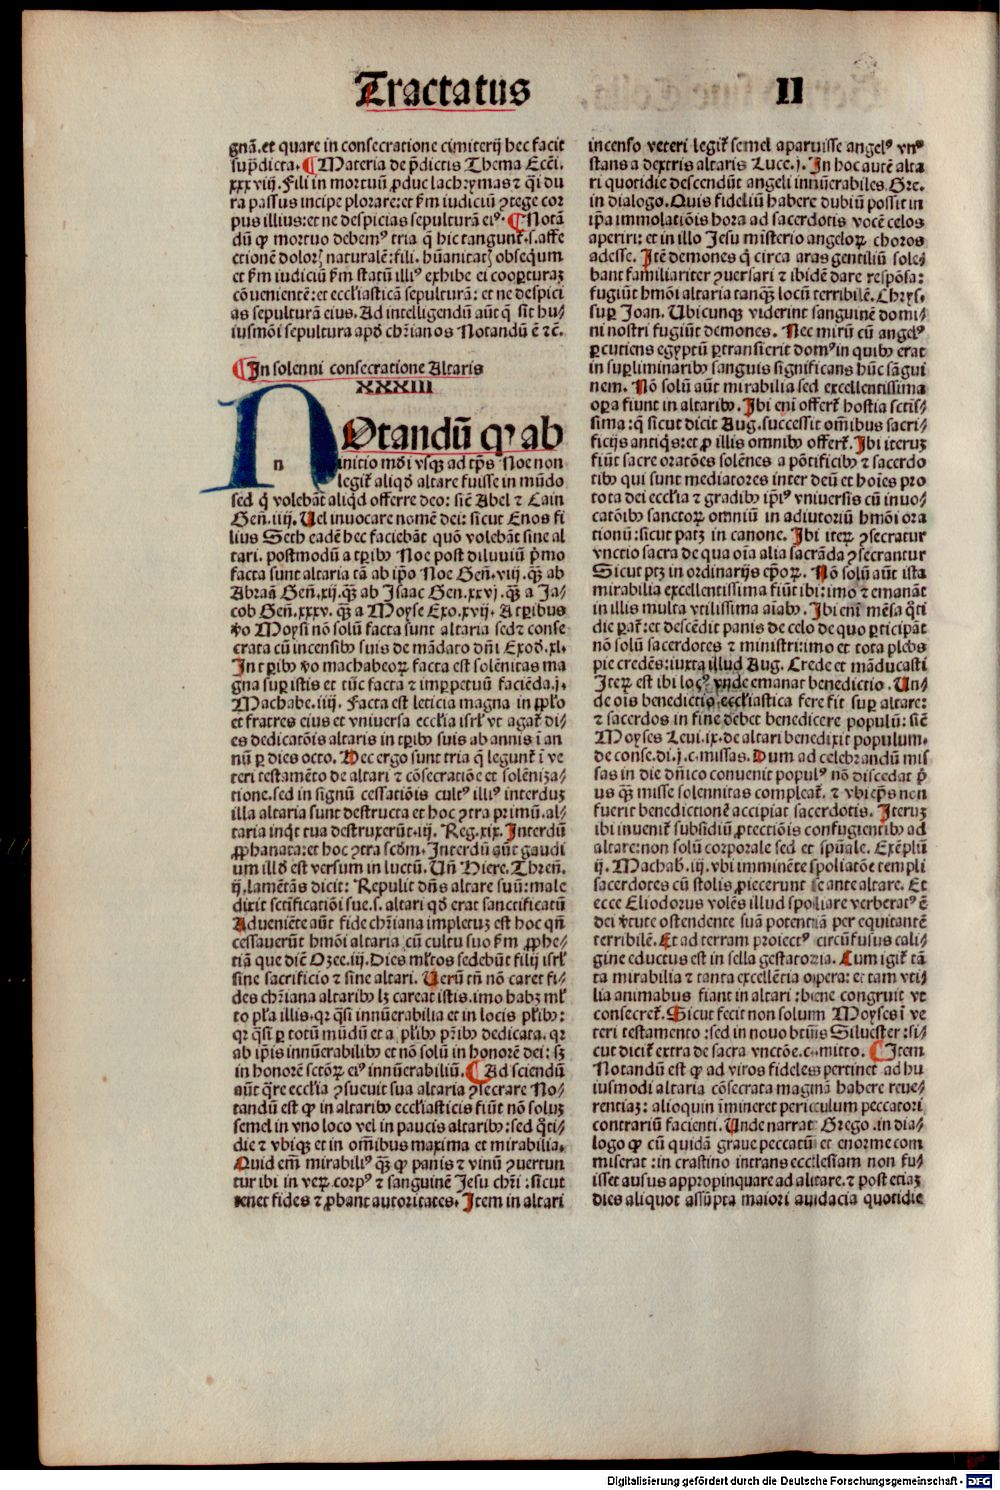 Tractatus II
gnã.et quare in consecratione cimiterij hec facit
sup̄dicta. ¶ Materia de p̄dictis Thema Ecc̄i.
xxxviij. Fili in mortuū ꝓduc lachrymas ⁊ q̄i du
ra passus incipe plorare: et ẜm iudiciū ꝯtege cor
pus illius: et ne despicias sepulturā eiꝰ. ¶ Notā
dū ꝙ mortuo debemꝰ tria q̄ hic tangunt̃.s.affe
ctionē doloꝝ naturalē: fili. hūanitatꝭ obsequm
et ẜm iudiciū ẜm statū illiꝰ exhibe ei cooperturaꝫ
cōuenientē: et eccl̃iasticā sepulturā: et ne despici
as sepulturā eius. Ad intelligendū aūt q̄ sit hu/
iusmōi sepultura apd̄ ch̄rianos Notandū ē ⁊c̄.
¶ In solenni consecratione Altaris
XXXIII
NOtandū ꝙ ab
initio mūdi vsqꝫ ad tp̄s Noe non
legit̃ aliqd̄ altare fuisse in mūdo
sed q̄ volebāt aliqd̄ offerre deo: sicut̄ Abel ⁊ Cain
Geñ.iiij. Vel inuocare nomē dei: sicut Enos fi
lius Seth eadē hec faciebāt quō volebāt sine al
tari. postmodū a tꝑibꝰ Noe post diluuiū p̄mo
facta sunt altaria tā ab ip̄o Noe Geñ.viij. qꝫ̄ ab
Abraā Geñ.xij. qꝫ̄ ab Isaac Geñ.xxvj. qꝫ̄ a Ja/
cob Geñ.xxxv. qꝫ̄ a Moyse Exo.xvij. A tꝑibus
ꝟo Moysi nō solū facta sunt altaria sedꝫ conse
crata cū incensibꝰ suis de mādato dn̄i Exod̄.xl.
In tꝑibꝰ ꝟo machabeoꝝ facta est solēnitas ma
gna suꝑ istis et tūc facta ⁊ imꝑpetuū faciēda.j.
Machabe.iiij. Facta est leticia magna in ppl̃o
et fratres eius et vniuersa eccl̃ia isrl̃ vt agat̃ di/
es dedicatōis altaris in tꝑibꝰ suis ab annis ī an
nū ꝑ dies octo. Hec ergo sunt tria q̄ legunt̃ ī ve
teri testamēto de altari ⁊ cōsecratiōe et solēniza/
tione. sed in signū cessatiōis cultꝰ illiꝰ interduꝫ
illa altaria sunt destructa et hoc ꝯtra primū. al/
taria inqt tua destruxerūt.iij. Reg.xix. Interdū
ꝓphanata: et hoc ꝯtra scd̄m. Interdū aūt gaudi
um illd̄ est versum in luctū. Vn̄ Hiere. Threñ.
ij. lamētās dicit: Repulit dn̄s altare suū: male
dixit sctificatiōi sue.s. altari qd̄ erat sanctificatū
Adueniēte aūt fide ch̄riana impletuꝫ est hoc qn̄
cessauerūt hmōi altaria cū cultu suo ẜm ꝓphe/
tiā que diē Ozee.iij. Dies ml̃tos sedebūt filij isrl̃
sine sacrificio ⁊ sine altari. Verū tn̄ nō caret fi/
des ch̄riana altaribꝰ lꝫ careat istis. imo habꝫ ml̃
to pl̃a illis. qꝛ q̄si innūerabilia et in locis pl̃ibꝰ:
qꝛ q̄si ꝑ totū mūdū et a pl̃ibꝰ p̄ribꝰ dedicata. qꝛ
ab ip̄is innūerabilibꝰ et nō solū in honorē dei: sꝫ
in honorē sctōꝝ eiꝰ innūerabiliū. ¶ Ad sciendū
aūt q̄re eccl̃ia ꝯsueuit sua altaria ꝯsecrare No/
tandū est ꝙ in altaribꝰ eccl̃iasticis fiūt nō soluꝫ
semel in vno loco vel in paucis altaribꝰ: sed q̄ti/
die ⁊ vbiqꝫ et in oībus maxima et mirabilia.
Quid em̄ mirabiliꝰ qꝫ̄ ꝙ panis ⁊ vinū ꝯuertun
tur ibi in veꝝ corpꝰ ⁊ sanguinē Jesu ch̄ri: sicut
tenet fides ⁊ ꝓbant autoritates. Item in altari
incenso veteri legit̃ semel aparuisse angelꝰ vnꝰ
stans a dextris altaris Luce.j. In hoc autē alta
ri quotidie descendūt angeli innūerabiles. Gre.
in dialogo. Quis fideliū habere dubiū possit in
ip̄a immolatiōis hora ad sacerdotis vocē celos
aperiri: et in illo Jesu mīsterio angeloꝝ choros
adesse. Itē demones q̄ circa aras gentiliū sole/
bant familiariter ꝯuersari ⁊ ibidē dare respōsa:
fugiūt hmōi altaria tanqꝫ̄ locū terribilē. Chrys.
suꝑ Joan. Vbicunqꝫ viderint sanguinē domi/
ni nostri fugiūt demones. Nec mirū cū angelꝰ
ꝑcutiens egyptū ꝑtransierit domꝰ in quibꝰ erat
in suꝑliminaribꝰ sanguis significans hūc sāgui
nem. Nō solū aūt mirabilia sed excellentissima
oꝑa fiunt in altaribꝰ. Ibi em̄ offert̃ hostia sctis/
sima: q̄ sicut dicit Aug. successit oībus sacri/
ficijs antiqs: et ꝓ illis omnibꝰ offert̃. Ibi iteruꝫ
fiūt sacre oratōes solēnes a pōtificibꝰ ⁊ sacerdo
tibꝰ qui sunt mediatores inter deū et hoīes pro
tota dei eccl̃ia ⁊ gradibꝰ ip̄iꝰ vniuersis cū inuo/
catōibꝰ sanctoꝝ omniū in adiutoriū hmōi ora
tionū: sicut patꝫ in canone. Ibi iteꝝ ꝯsecratur
vnctio sacra de qua oīa alia sacrāda ꝯsecrantur
Sicut ptꝫ in ordinarijs ep̄oꝝ. Nō solū aūt ista
mirabilia excellentissima fiūt ibi: imo ⁊ emanāt
in illis multa vtilissima aīabꝰ. Ibi em̄ mēsa q̄ti
die ꝑat̃: et descēdit panis de celo de quo ꝑticipāt
nō solū sacerdotes ⁊ ministri: imo et tota plebs
pie credēs: iuxta illud Aug. Crede et māducasti
Iteꝝ est ibi locꝰ vnde emanat benedictio. Vn/
de oīs benedictio eccl̃iastica fere fit suꝑ altare:
⁊ sacerdos in fine debet benedicere populū: sicut̄
Moyses Leui.ix. de altari benedixit populum.
de conse.di.j.c.missas. Dum ad celebrandū mis
sas in die dn̄ico convenit populꝰ nō discedat p̄
us qꝫ̄ misse solennitas compleat̃. ⁊ vbi ep̄s non
fuerit benedictionē accipiat sacerdotis. Iteruꝫ
ibi inuenit̃ subsidiū ꝓtectiōis confugientibꝰ ad
altare: non solū corporale sed et spūale. Exēplū
ij. Machab̄.iij. vbi imminēte spoliatōe templi
sacerdotes cū stolis ꝓiecerunt se ante altare. Et
ecce Eliodorus volēs illud spoliare verberatꝰ ē
dei ꝟtute ostendente suā potentiā per equitantē
terribilē. Et ad terram proiectꝰ circūfusus cali/
gine eductus est in sella gestatoria. Cum igit̃ tā
ta mirabilia ⁊ tanta excellētia opera: et tam vti/
lia animabus fiant in altari: bene congruit vt
consecret̃. Sicut fecit non solum Moyses ī ve
teri testamento: sed in nouo btūs Siluester: si/
cut dicit̃ extra de sacra vnctōe.c.mitto. ¶ Item
Notandū est ꝙ ad viros fideles pertinet ad hu
iusmodi altaria cōsecrata magnā habere reue/
rentiaꝫ: alioquin īmineret periculum peccatori
contrariū facienti. Vnde narrat Grego.in dia/
logo ꝙ cū quidā graue peccatū et enorme com
miserat: in crastino intrans ecclesiam non fu/
isset ausus appropinquare ad alitare. ⁊ post etiaꝫ
dies aliquot assūpta maiori audacia quotidie
Digitalisierung gefördert durch die Deutsche Forschungsgemeinschaft - DFG